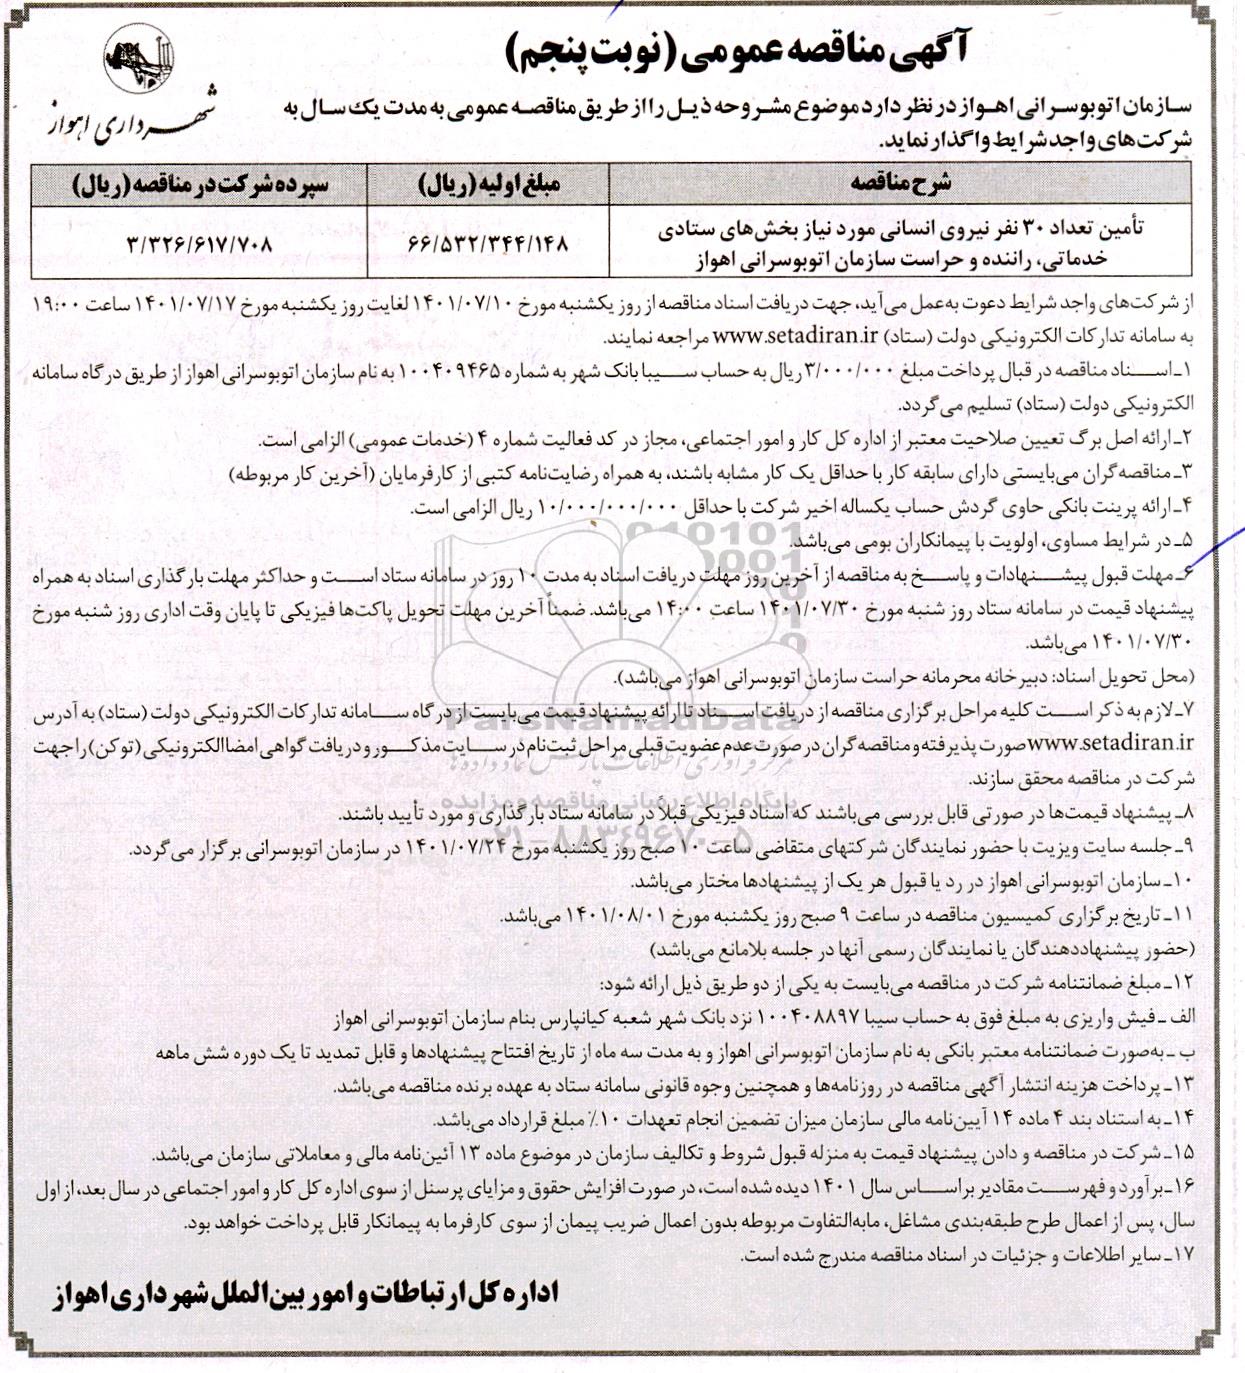 آگهی مناقصه عمومی (نوبت پنجم)
شهرداری اهواز
سازمان اتوبوسرانی اهواز در نظر دارد موضوع مشروحه ذیل را از طریق مناقصه عمومی به مدت یک سال به
شرکت‌های واجد شرایط واگذار نماید.
شرح مناقصه	مبلغ اولیه (ریال)	سپرده شرکت در مناقصه (ریال)
تأمین تعداد ۳۰ نفر نیروی انسانی مورد نیاز بخش‌های ستادی
خدماتی، راننده و حراست سازمان اتوبوسرانی اهواز
۶۶/۵۳۲/۳۴۴/۱۴۸	۳/۳۲۶/۶۱۷/۷۰۸
از شرکت‌های واجد شرایط دعوت به‌عمل می‌آید، جهت دریافت اسناد مناقصه از روز یکشنبه مورخ ۱۴۰۱/۰۷/۱۰ لغایت روز یکشنبه مورخ ۱۴۰۱/۰۷/۱۷ ساعت ۱۹:۰۰
به سامانه تدارکات الکترونیکی دولت (ستاد) www.setadiran.ir مراجعه نمایند.
۱ـ اسـناد مناقصه در قبال پرداخت مبلغ ۳/۰۰۰/۰۰۰ ریال به حساب سـیبا بانک شهر به شماره ۱۰۰۴۰۹۴۶۵ به نام سازمان اتوبوسرانی اهواز از طریق درگاه سامانه
الکترونیکی دولت (ستاد) تسلیم می‌گردد.
۲ـ ارائه اصل برگ تعیین صلاحیت معتبر از اداره کل کار و امور اجتماعی، مجاز در کد فعالیت شماره ۴ (خدمات عمومی) الزامی است.
۳ـ مناقصه‌گران می‌بایستی دارای سابقه کار با حداقل یک کار مشابه باشند، به همراه رضایت‌نامه کتبی از کارفرمایان (آخرین کار مربوطه)
۴ـ ارائه پرینت بانکی حاوی گردش حساب یکساله اخیر شرکت با حداقل ۱۰/۰۰۰/۰۰۰/۰۰۰ ریال الزامی است.
۵ـ در شرایط مساوی، اولویت با پیمانکاران بومی می‌باشد.
۶ـ مهلت قبول پیشـنهادات و پاسـخ به مناقصه از آخرین روز مهلت دریافت اسناد به مدت ۱۰ روز در سامانه ستاد اسـت و حداکثر مهلت بارگذاری اسناد به همراه
پیشنهاد قیمت در سامانه ستاد روز شنبه مورخ ۱۴۰۱/۰۷/۳۰ ساعت ۱۴:۰۰ می‌باشد. ضمناً آخرین مهلت تحویل پاکت‌ها فیزیکی تا پایان وقت اداری روز شنبه مورخ
۱۴۰۱/۰۷/۳۰ می‌باشد.
(محل تحویل اسناد: دبیرخانه محرمانه حراست سازمان اتوبوسرانی اهواز می‌باشد).
۷ـ لازم به ذکر اسـت کلیه مراحل برگزاری مناقصه از دریافت اسـناد تا ارائه پیشنهاد قیمت می‌بایست از درگاه سـامانه تدارکات الکترونیکی دولت (ستاد) به آدرس
www.setadiran.ir صورت پذیرفته و مناقصه گران در صورت عدم عضویت قبلی مراحل ثبت‌نام در سـایت مذکـور و دریافت گواهی امضا الکترونیکی (توکن) را جهت
شرکت در مناقصه محقق سازند.
۸ـ پیشنهاد قیمت‌ها در صورتی قابل بررسی می‌باشند که اسناد فیزیکی قبلاً در سامانه ستاد بارگذاری و مورد تأیید باشند.
۹ـ جلسه سایت ویزیت با حضور نمایندگان شرکتهای متقاضی ساعت ۱۰ صبح روز یکشنبه مورخ ۱۴۰۱/۰۷/۲۴ در سازمان اتوبوسرانی برگزار می‌گردد.
۱۰ـ سازمان اتوبوسرانی اهواز در رد یا قبول هر یک از پیشنهادها مختار می‌باشد.
۱۱ـ تاریخ برگزاری کمیسیون مناقصه در ساعت ۹ صبح روز یکشنبه مورخ ۱۴۰۱/۰۸/۰۱ می‌باشد.
(حضور پیشنهاددهندگان یا نمایندگان رسمی آنها در جلسه بلامانع می‌باشد)
۱۲ـ مبلغ ضمانتنامه شرکت در مناقصه می‌بایست به یکی از دو طریق ذیل ارائه شود:
الف ـ فیش واریزی به مبلغ فوق به حساب سیبا ۱۰۰۴۰۸۸۹۷ نزد بانک شهر شعبه کیانپارس بنام سازمان اتوبوسرانی اهواز
ب ـ به‌صورت ضمانتنامه معتبر بانکی به نام سازمان اتوبوسرانی اهواز و به مدت سه ماه از تاریخ افتتاح پیشنهادها و قابل تمدید تا یک دوره شش ماهه
۱۳ـ پرداخت هزینه انتشار آگهی مناقصه در روزنامه‌ها و همچنین وجوه قانونی سامانه ستاد به عهده برنده مناقصه می‌باشد.
۱۴ـ به استناد بند ۴ ماده ۱۴ آیین‌نامه مالی سازمان میزان تضمین انجام تعهدات ۱۰٪ مبلغ قرارداد می‌باشد.
۱۵ـ شرکت در مناقصه و دادن پیشنهاد قیمت به منزله قبول شروط و تکالیف سازمان در موضوع ماده ۱۳ آئین‌نامه مالی و معاملاتی سازمان می‌باشد.
۱۶ـ برآورد و فهرسـت مقادیر براسـاس سال ۱۴۰۱ دیده شده است، در صورت افزایش حقوق و مزایای پرسنل از سوی اداره کل کار و امور اجتماعی در سال بعد، از اول
سال، پس از اعمال طرح طبقه‌بندی مشاغل، مابه‌التفاوت مربوطه بدون اعمال ضریب پیمان از سوی کارفرما به پیمانکار قابل پرداخت خواهد بود.
۱۷ـ سایر اطلاعات و جزئیات در اسناد مناقصه مندرج شده است.
اداره کل ارتباطات و امور بین‌الملل شهرداری اهواز
ParsNamadData
مرکز فرآوری اطلاعات پارس نماد داده‌ها
پایگاه اطلاع رسانی مناقصه و مزایده
۰۲۱-۸۸۳۴۹۶۷۰-۵